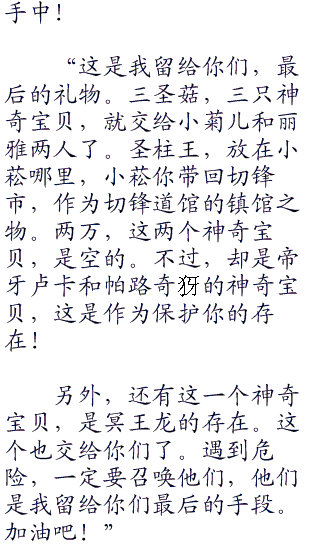 手中！
“这是我留给你们，最
后的礼物。三圣菇，三只神
奇宝贝，就交给小菊儿和丽
雅两人了。圣柱王，放在小
菘哪里，小菘你带回切锋
市，作为切锋道馆的镇馆之
物。两万，这两个神奇宝
贝，是空的。不过，却是帝
牙卢卡和帕路奇犽的神奇宝
贝，这是作为保护你的存
在！
另外，还有这一个神奇
宝贝，是冥王龙的存在。这
个也交给你们了。遇到危
险，一定要召唤他们，他们
是我留给你们最后的手段。
加油吧！”